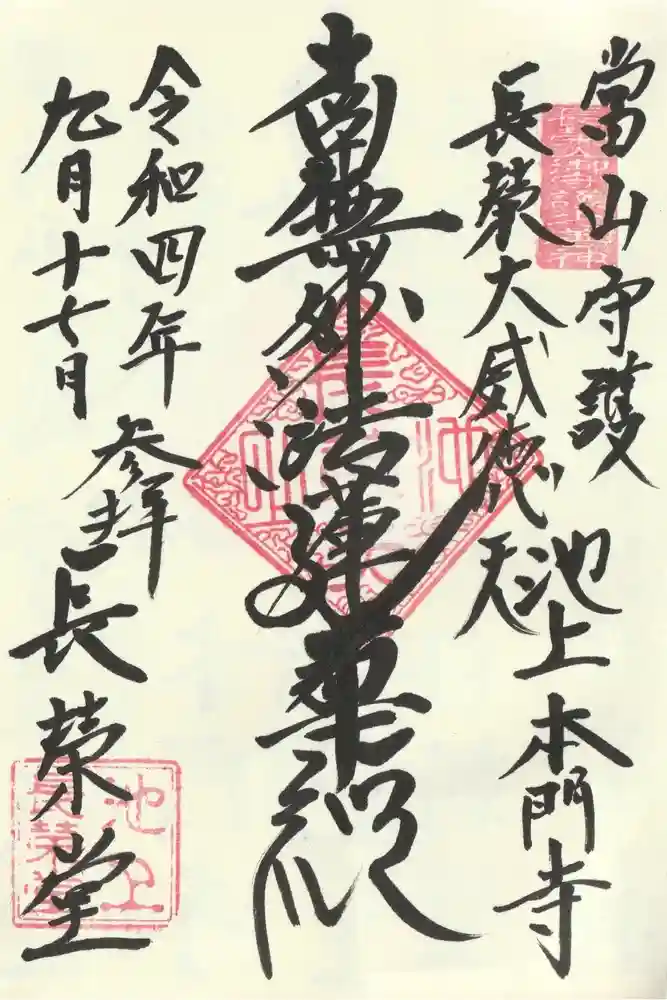 當山守護
長榮大威德天
池上本門寺
南無妙法蓮華経
令和四年
九月十七日
参拝
長榮堂
池上
長栄堂